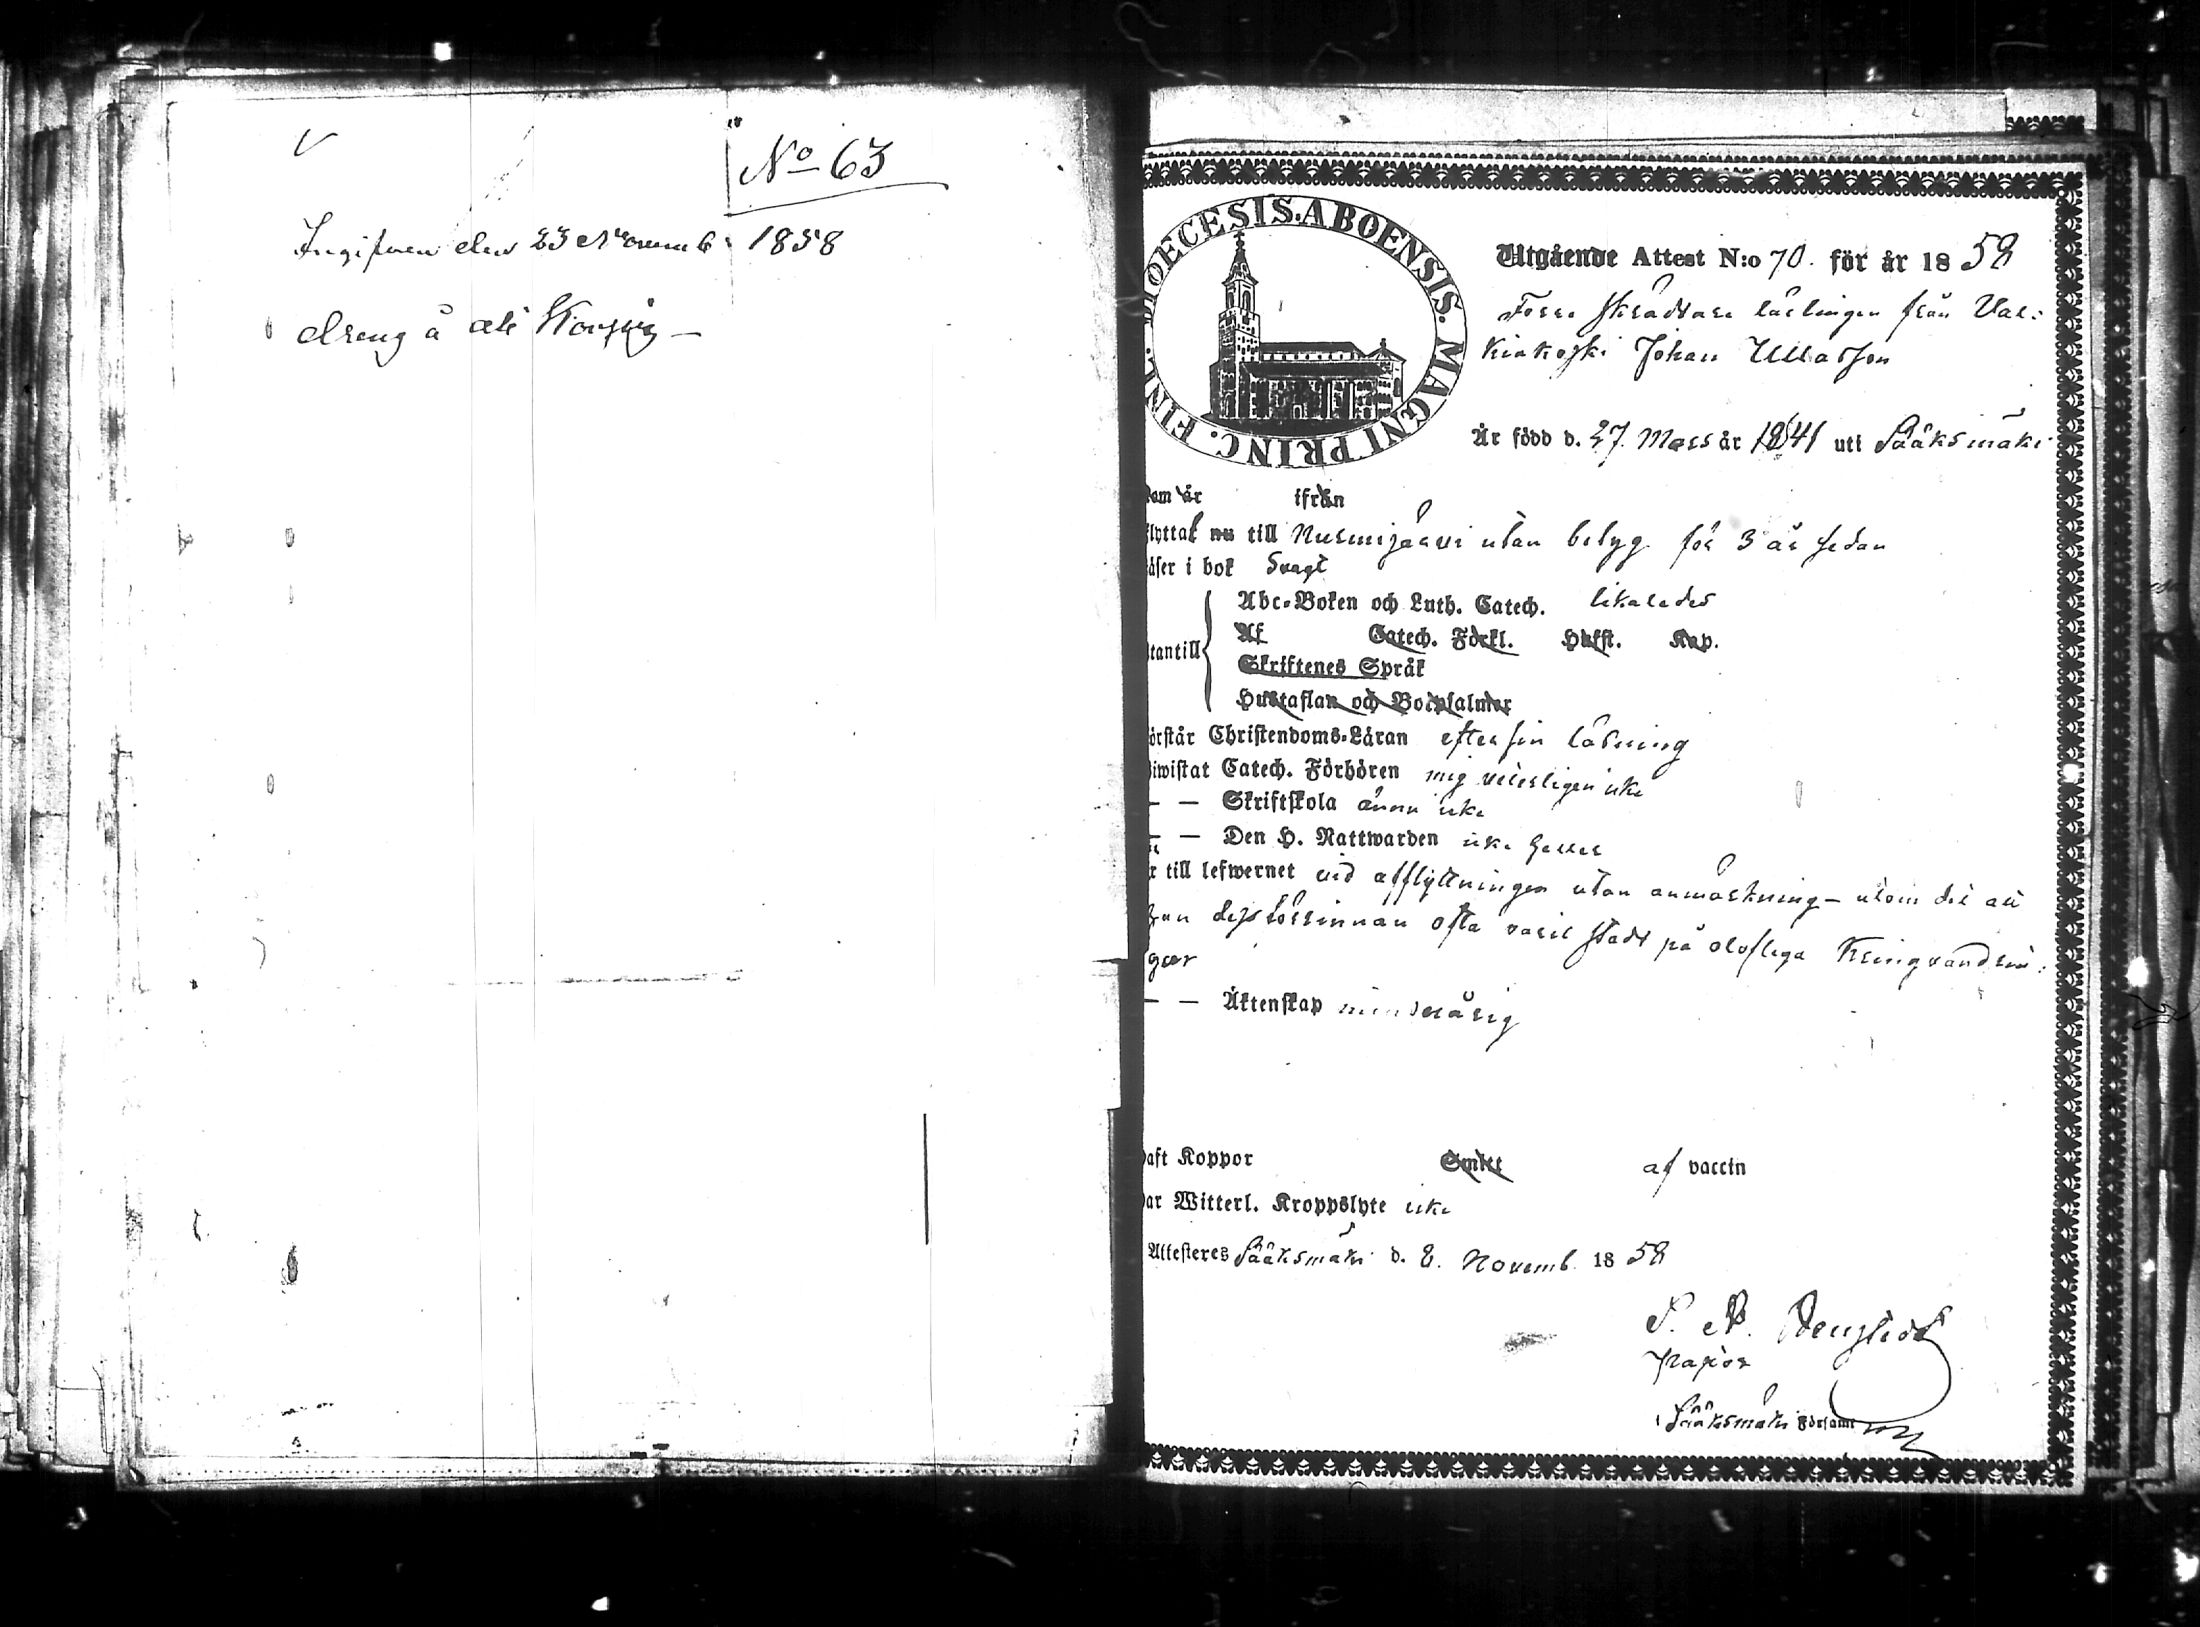 No 63
Ingifven den 23 Novemb. 1858
dreng å
DIOECESIS. ABOENSIS. MAGNI PRINC. FINL.
Utgående Attest N:o 70. för år 1858
Förre skräddare lärlingen från Val:
kiakoski Johan
Är född d. 27. Mars år 1841 uti Sääksmäki
Kom år ifrån
flyttat nu till Nurmijärvi utan betyg för 3 år sedan
Läser i bok Svagt
Utantill
Abc-Boken och Luth. Catech. likaledes
Af Catech. Förkl. Hufst. Kap.
Skriftenes Språk
Hustaflan och Botpsalmer
Förstår Christendoms-Läran efter sin läsning
Biwistat Catech. Förhören mig veterligen icke
— — Skriftskola ännu icke
— — Den H. Nattwarden icke heller
är till lefwernet vid afflyttningen utan anmärkning – utom det att
han dess förrinnan ofta varit stadd på olofliga kringvandrin:
gar
— — Äktenskap minderårig
Haft Koppor Smitt af vaccin
Har Witterl. Kroppslyte icke
Attesteres Sääksmäki d. 8. Novemb. 1858
Pastor
i Sääksmäki Församl.